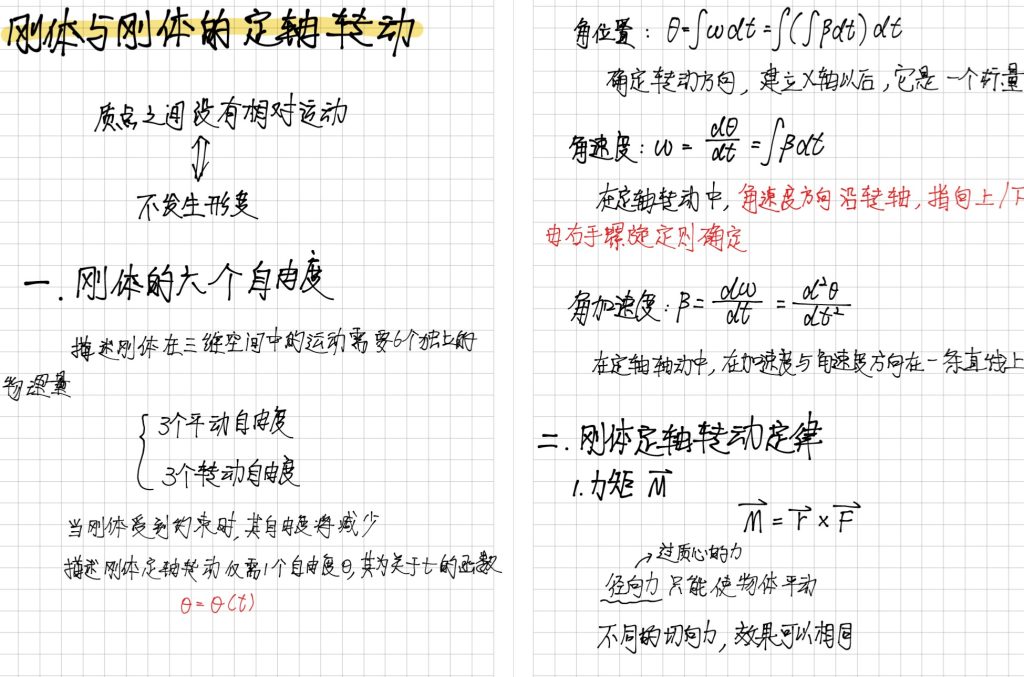 刚体与刚体的定轴转动
质点之间没有相对运动
⇕
不发生形变
一.刚体的六个自由度
描述刚体在三维空间中的运动需要6个独立的
物理量
{ 3个平动自由度
3个转动自由度
当刚体受到约束时,其自由度将减少
描述刚体定轴转动仅需1个自由度θ,其为关于t的函数
θ=θ(t)
角位置: θ=∫ωdt=∫(∫βdt)dt
确定转动方向,建立X轴以后,它是一个标量
角速度: ω = dθ/dt = ∫βdt
在定轴转动中,角速度方向沿转轴,指向上/下
由右手螺旋定则确定
角加速度: β = dω/dt = d²θ/dt²
在定轴轴动中,在加速度与角速度方向在一条直线上
二.刚体定轴转动定律
1.力矩 M⃗
M⃗ = r⃗ × F⃗
→过质心的力
径向力只能使物体平动
不同的切向力,效果可以相同